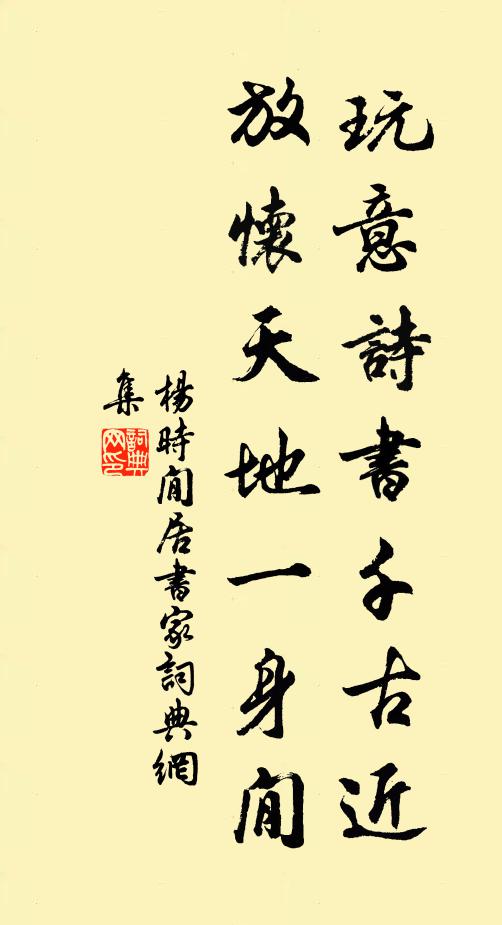 玩意詩書千古近
放懷天地一身閒
楊時閒居書家詞典網
集
詞典网印